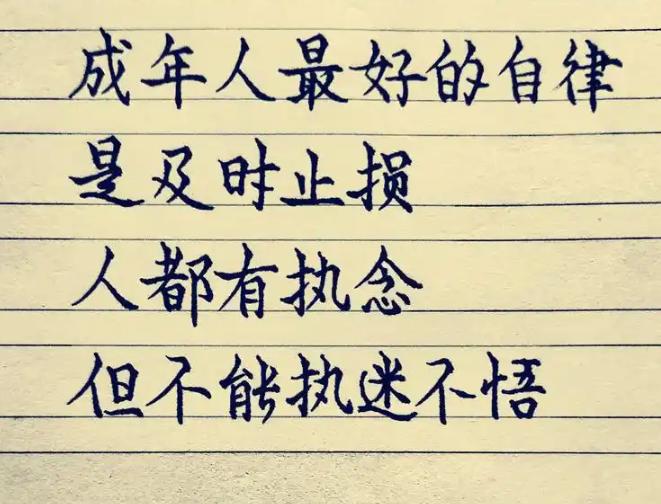 成年人最好的自律
是及时止损
人都有执念
但不能执迷不悟